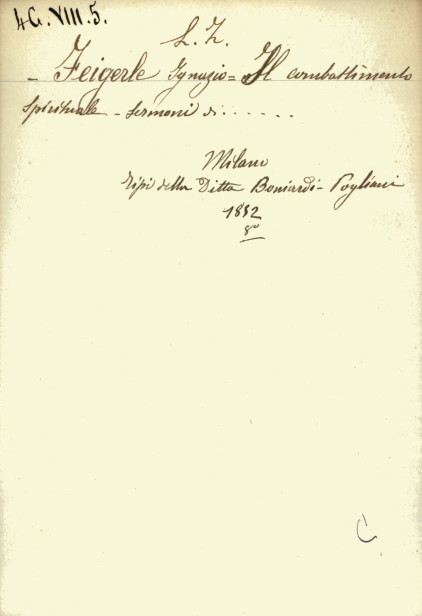 4G.VIII.5.
L. Z.
- Feigerle Ignazio = Il combattimento
spirituale - sermoni di . . . . . .
Milano
Tipi della Ditta Boniardi - Pogliani
1852
8º
C